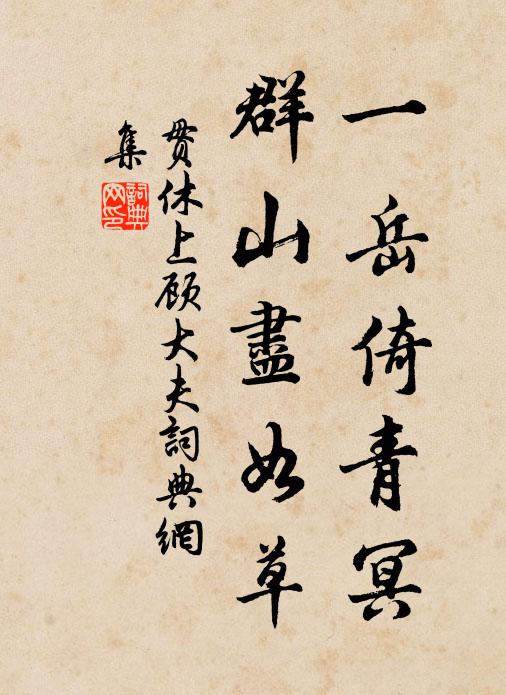 一岳倚青冥
群山盡如草
貫休上顾大夫詞典網
集
詞典
网印